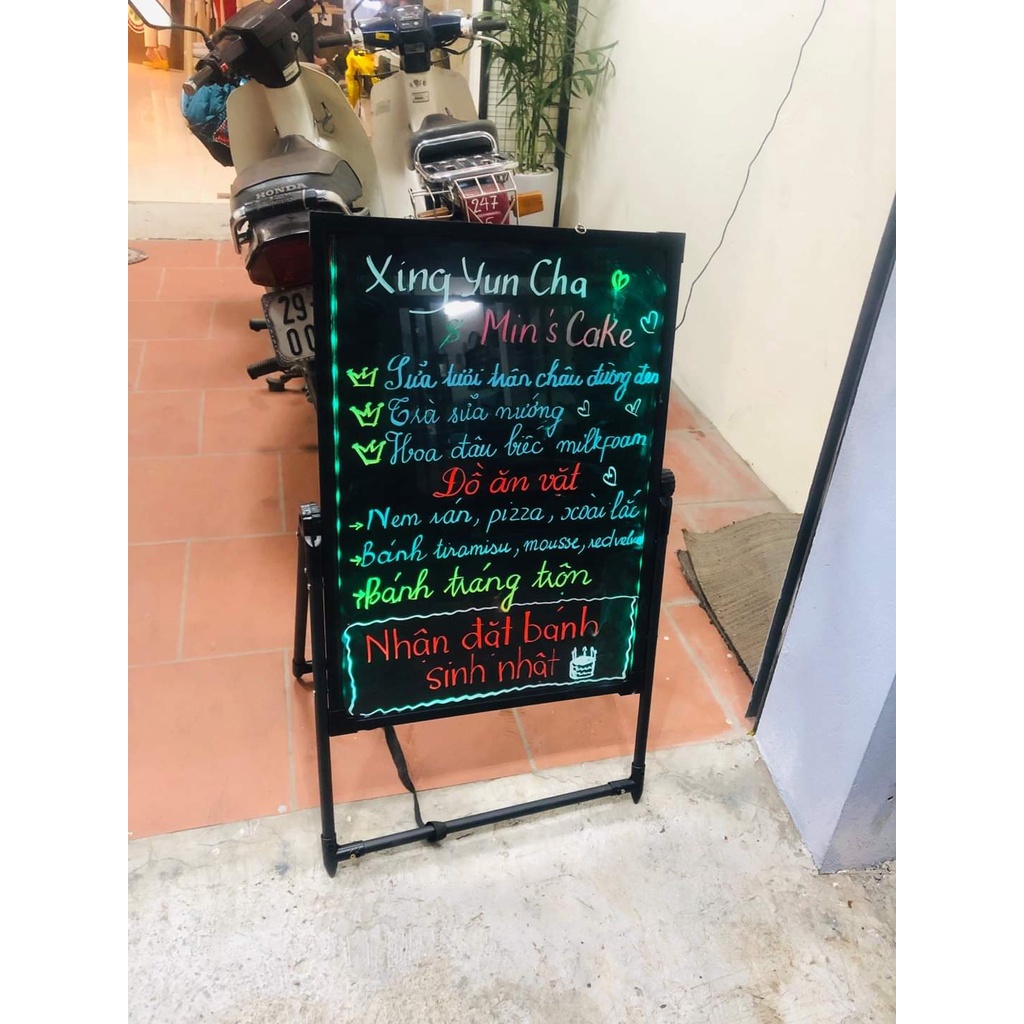 HONDA
247
29
00
Xing Yun Cha
& Min's Cake
Sữa tươi trân châu đường đen
Trà sữa nướng
Hoa đậu biếc milkfoam
Đồ ăn vặt
Nem rán, pizza, xoài lắc
Bánh tiramisu, mousse, redvelvet
Bánh tráng trộn
Nhận đặt bánh
sinh nhật